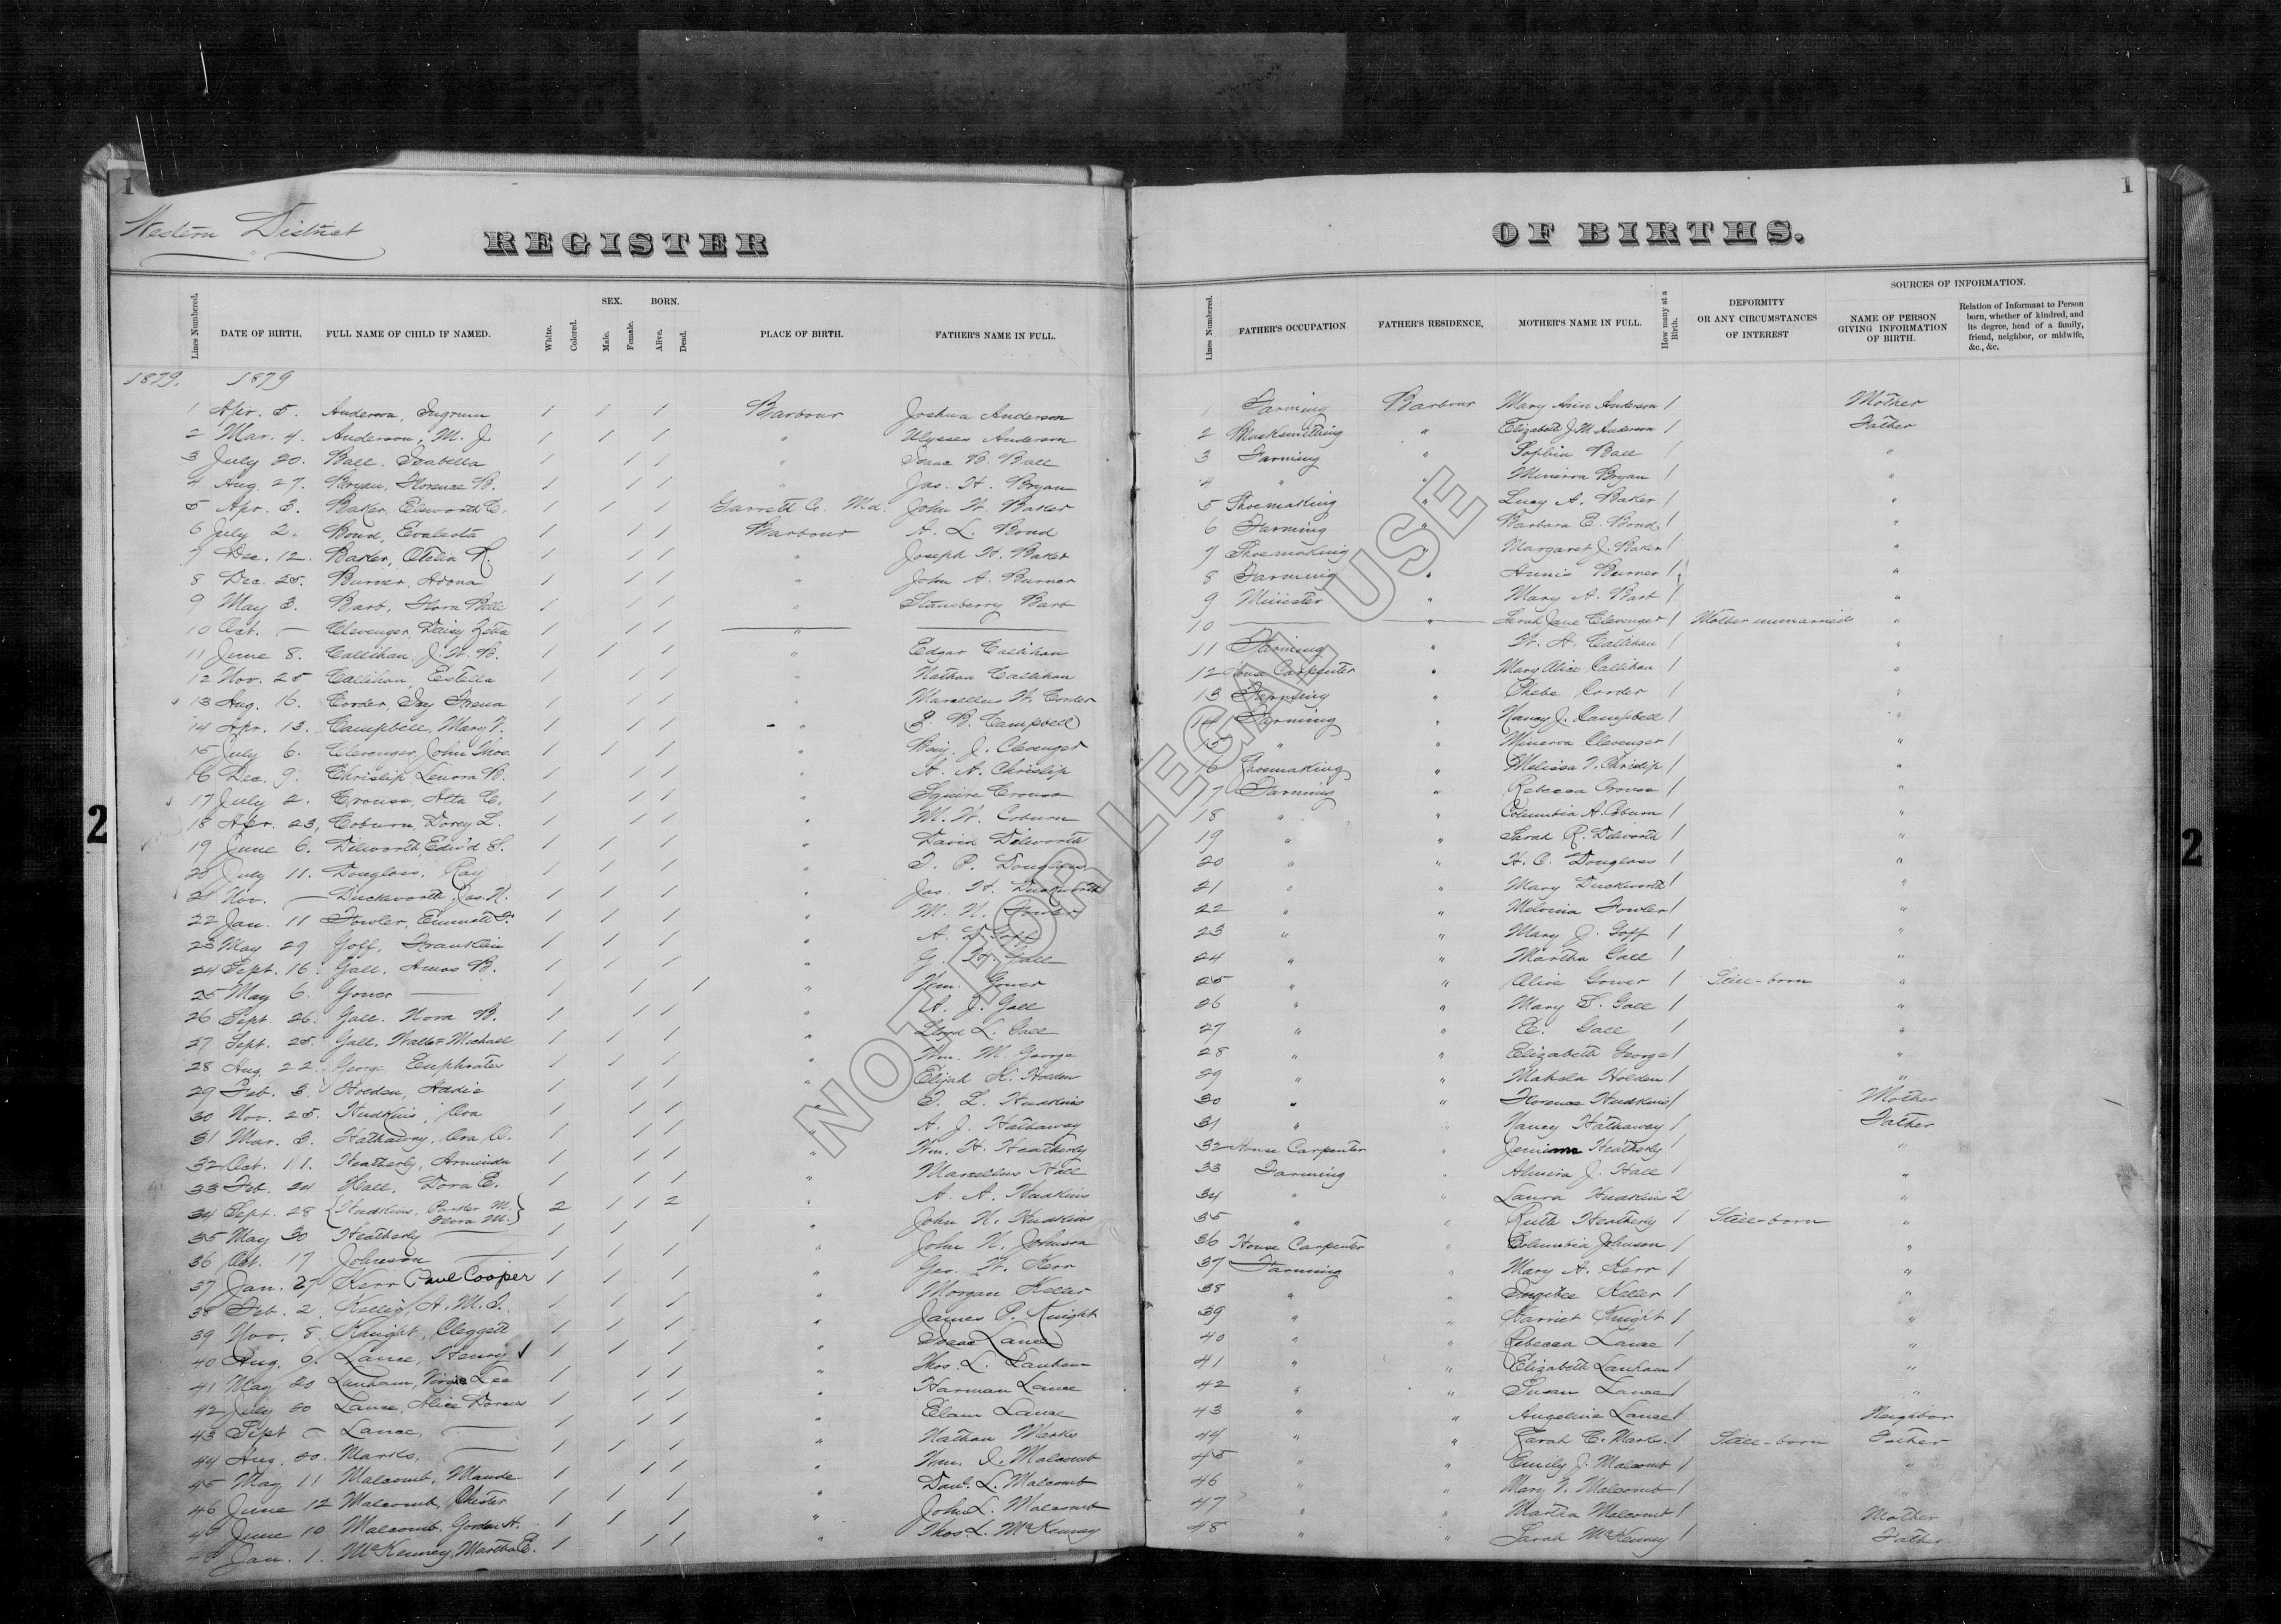 1
1
Western District
REGISTER
OF BIRTHS.
Lines Numbered.
DATE OF BIRTH.
FULL NAME OF CHILD IF NAMED.
White.
Colored.
SEX.
Male.
Female.
BORN.
Alive.
Dead.
PLACE OF BIRTH.
FATHER'S NAME IN FULL.
Lines Numbered.
FATHER'S OCCUPATION
FATHER'S RESIDENCE,
MOTHER'S NAME IN FULL.
How many at a Birth.
DEFORMITY
OR ANY CIRCUMSTANCES
OF INTEREST
SOURCES OF INFORMATION.
NAME OF PERSON
GIVING INFORMATION
OF BIRTH.
Relation of Informant to Person
born, whether of kindred, and
its degree, head of a family,
friend, neighbor, or midwife,
&c., &c.
1879. 1879
1 Apr. 5. Anderson, Ingrum 1 1 1 Barbour Joshua Anderson 1 Farming Barbour Mary Ann Anderson 1 Mother
2 Mar. 4. Anderson, M. J. 1 1 1 " Ulysses Anderson 2 Blacksmithing " Elizabeth J. M. Anderson 1 Father
3 July 20. Ball, Isabella 1 1 1 " Isaac B. Ball 3 Farming " Sophia Ball 1 "
4 Aug. 27. Bryan, Florence B. 1 1 1 " Jas. H. Bryan 4 " " Minerva Bryan 1 "
5 Apr. 3. Baker, Elsworth C. 1 1 1 Garrett Co. Md. John W. Baker 5 Shoemaking " Lucy A. Baker 1 "
6 July 2. Bond, Evaleota 1 1 1 Barbour A. L. Bond 6 Farming " Barbara E. Bond 1 "
7 Dec. 12. Baker, Otelia R. 1 1 1 " Joseph H. Baker 7 Shoemaking " Margaret J. Baker 1 "
8 Dec. 25. Burner, Adona 1 1 1 " John A. Burner 8 Farming " Annis Burner 1 "
9 May 3. Barb, Flora Belle 1 1 1 " Stansberry Barb 9 Minister " Mary A. Barb 1 "
10 Oct. — Clevenger, Daisy Zetta 1 1 1 " — 10 — " Sarah Jane Clevenger 1 Mother unmarried "
11 June 8. Callihan, J. W. B. 1 1 1 " Edgar Callihan 11 Farming " W. A. Callihan 1 "
12 Nov. 25 Callihan, Estella 1 1 1 " Nathan Callihan 12 House Carpenter " Mary Alice Callihan 1 "
13 Aug. 16. Corder, Icy Irena 1 1 1 " Marcellus W. Corder 13 Farming " Phebe Corder 1 "
14 Apr. 13. Campbell, Mary V. 1 1 1 " B. Campbell 14 Farming " Nancy J. Campbell 1 "
15 July 6. Clevenger, John Thos. 1 1 1 " Benj. J. Clevenger 15 " " Minerva Clevenger 1 "
16 Dec. 9. Chrislip, Lenora B. 1 1 1 " A. A. Chrislip 16 Shoemaking " Melissa V. Chrislip 1 "
17 July 2. Crouse, Alta C. 1 1 1 " Squire Crouse 17 Farming " Rebecca Crouse 1 "
18 Apr. 23, Coburn, Dorey L. 1 1 1 " M. W. Coburn 18 " " Columbia A. Coburn 1 "
19 June 6. Dilworth, Edw'd S. 1 1 1 " David Dilworth 19 " " Sarah R. Dilworth 1 "
20 July 11. Douglass, Ray 1 1 1 " P. Douglass 20 " " H. C. Douglass 1 "
21 Nov. — Duckworth, Jas. N. 1 1 1 " Jas. H. Duckworth 21 " " Mary Duckworth 1 "
22 Jan. 11 Fowler, Emmett 1 1 1 " M. N. Fowler 22 " " Melvina Fowler 1 "
23 May 29 Goff, Franklin 1 1 1 " A. D. Goff 23 " " Mary J. Goff 1 "
24 Sept. 16. Gall, Amos B. 1 1 1 " G. W. Gall 24 " " Martha Gall 1 "
25 May 6. Gower — 1 1 1 " Wm. Gower 25 " " Olive Gower 1 Still-born "
26 Sept. 26. Gall, Nora B. 1 1 1 " A. J. Gall 26 " " Mary E. Gall 1 "
27 Sept. 25. Gall, Walt= Michael 1 1 1 " Lloyd L. Gall 27 " " E. Gall 1 "
28 Aug. 22. George, Euphrates 1 1 1 " Wm. M. George 28 " " Elizabeth George 1 "
29 Feb. 3. Holden, Addie 1 1 1 " Elijah K. Holden 29 " " Mahala Holden 1 "
30 Nov. 25. Hudkins, Ora 1 1 1 " L. Hudkins 30 " " Florence Hudkins 1 Mother
31 Mar. 3. Hathaway, Ora O. 1 1 1 " A. J. Hathaway 31 " " Nancy Hathaway 1 Father
32 Oct. 11. Heatherly, Arminda 1 1 1 " Wm. H. Heatherly 32 House Carpenter " Heatherly 1 "
33 Feb. 24 Hall, Dora E. 1 1 1 " Marcellus Hall 33 Farming " Almira J. Hall 1 "
34 Sept. 28 { Hudkins, Parker M. Flora M. } 2 1 1 2 " A. A. Hudkins 34 " " Laura Hudkins 2 "
35 May 30 Heatherly — 1 1 1 " John N. Hudkins 35 " " Ruth Heatherly 1 Still-born "
36 Oct. 17 Johnson — 1 1 1 " John N. Johnson 36 House Carpenter " Columbia Johnson 1 "
37 Jan. 27 Kerr Paul Cooper 1 1 1 " Geo. W. Kerr 37 Farming " Mary A. Kerr 1 "
38 Feb. 2. Keller, A. M. 1 1 1 " Morgan Keller 38 " " Keller 1 "
39 Nov. 8 Knight, Cleggett 1 1 1 " James P. Knight 39 " " Harriet Knight 1 "
40 Aug. 6. Lance, Henry 1 1 1 " Isaac Lance 40 " " Rebecca Lance 1 "
41 May 20 Lanham, Virgie Lee 1 1 1 " Thos. L. Lanham 41 " " Elizabeth Lanham 1 "
42 July 20 Lance, Alice Dorcus 1 1 1 " Harman Lance 42 " " Susan Lance 1 "
43 Sept — Lance, — 1 1 1 " Elam Lance 43 " " Angeline Lance 1 Neighbor
44 Aug. 20. Marks, — 1 1 1 " Nathan Marks 44 " " Sarah C. Marks 1 Still-born Father
45 May 11 Malcomb, Maude 1 1 1 " Wm. D. Malcomb 45 " " Emily J. Malcomb 1 "
46 June 12 Malcomb, Chester 1 1 1 " Danl. L. Malcomb 46 " " Mary V. Malcomb 1 "
47 June 10 Malcomb, Gordon H. 1 1 1 " John L. Malcomb 47 " " Martha Malcomb 1 Mother
48 Jan. 1. McKenney, Martha E. 1 1 1 " Thos. L. McKenney 48 " " Sarah McKenney 1 Father
2
2
NOT FOR LEGAL USE